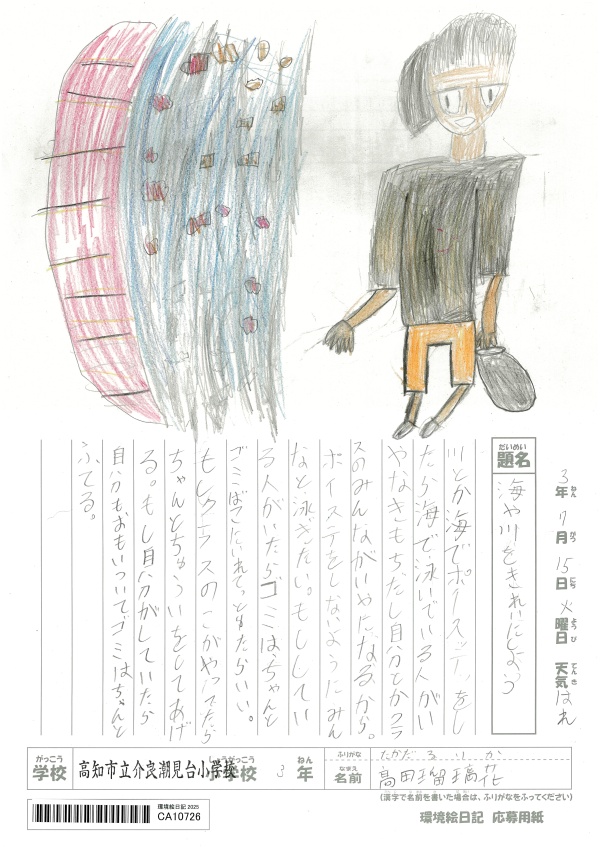 3年 7月 15日 火曜日 天気 はれ
ねん がつ にち ようび てんき
だいめい
題名 海や川をきれいにしよう
川とか海でポイステをし
たら海で泳いでいる人がい
やなきもちだし自分とかクラ
スのみんながいやになるから。
ポイステをしないようにみん
なと泳ぎたい。もししてい
る人がいたらゴミは、ちゃんと
ゴミばこにいれてっともたらいい。
もしクラスのこがやってたら
ちゃんとちゅういをしてあげ
る。もし自分がしていたら
自分もおもいついてゴミはちゃんと
ふてる。
がっこう
学校 高知市立介良潮見台小学校 小学校 3年
ねん
ふりがな たかだ るりか
なまえ
名前 高田瑠璃花
(漢字で名前を書いた場合は、ふりがなをふってください)
環境絵日記 2025
CA10726
環境絵日記 応募用紙